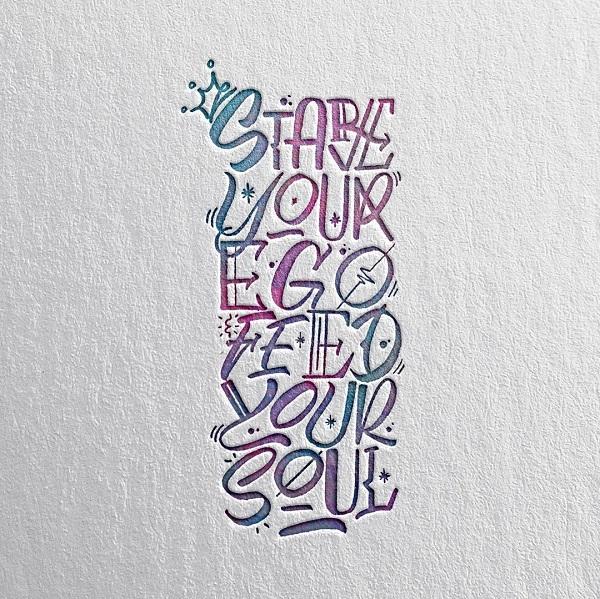 STARVE
YOUR
EGO
FEED
YOUR
SOUL